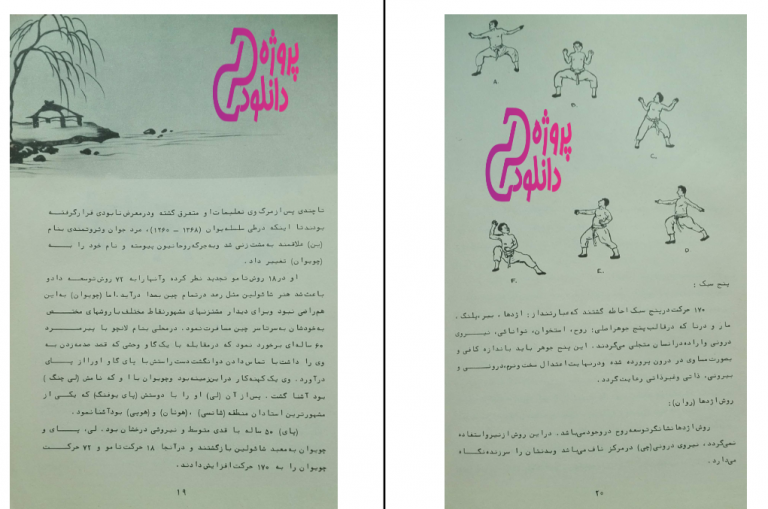 پروژه
دانلود
تاچندی پس از مرگ وی تعلیمات او متفرق گشته ودرمعرض نابودی قرارگرفته
بودندتا اینکه درطی سلسله یوان (۱۳۶۸ – ۱۲۶۰)، مرد جوان وثروتمندی بنام
(ین) علاقمند به مشت زنی شد وبه جرگه روحانیون پیوسته و نام خود را به
(چویوان) تغییر داد.
او در۱۸ روش تامو تجدید نظر کرده وآنها رابه ۷۲ روش توسعه دادو
باعث شد هنر شائولین مثل رعد درتمام چین بصدا درآید. اما (چویوان) به این
هم راضی نبود وبرای دیدار مشتزنهای مشهور نقاط مختلف با روشهای مختص
به خودشان به سرتاسر چین مسافرت نمود. درمحلی بنام لانجو با پیرمرد
۶۰ ساله ای برخورد نمود که درمقابله با یک گاو وحشی که قصد صدمه زدن به
وی را داشت با تماس دادن دوانگشت دست راستش با پای گاو اورااز پای
درآورد. وی یک کهنه کار دراین زمینه بود وچویوان با او که نامش (لی چنگ)
بود آشنا گشت. پس از آن (لی) او را با دوستش (پای یوفنگ) که یکی از
مشهورترین استادان منطقه (شانسی)، (هونان) و (هوپی) بود آشنا نمود.
(پای) ۵۰ ساله با قدی متوسط و نیروئی درخشان بود. لی، پای و
چویوان به معبد شائولین بازگشتند و درآنجا ۱۸ حرکت تامو و ۷۲ حرکت
چویوان را به ۱۷۰ حرکت افزایش دادند.
۱۹
A.
B.
C.
پروژه
دانلود
F.
E.
D.
پنج سبک:
۱۷۰ حرکت درپنج سبک احاطه گشتند که عبارتنداز: اژدها، ببر، پلنگ،
مار و درنا که درقالب پنج جوهر اصلی: روح، استخوان، توانائی، نیروی
درونی واراده درانسان متجلی می گردند. این پنج جوهر باید باندازه کافی و
بصورت مساوی در درون پرورده شده ودرنهایت اعتدال سخت ونرم، درونی و
بیرونی، ذاتی وغیرذاتی رعایت گردد.
روش اژدها (روان):
روش اژدها نشانگر توسعه روح درخود می باشد. دراین روش ازنیرو استفاده
نمی گردد، نیروی درونی (چی) درمرکز ناف می باشد وبدنتان را سرزنده نگاه
می دارد.
۲۰